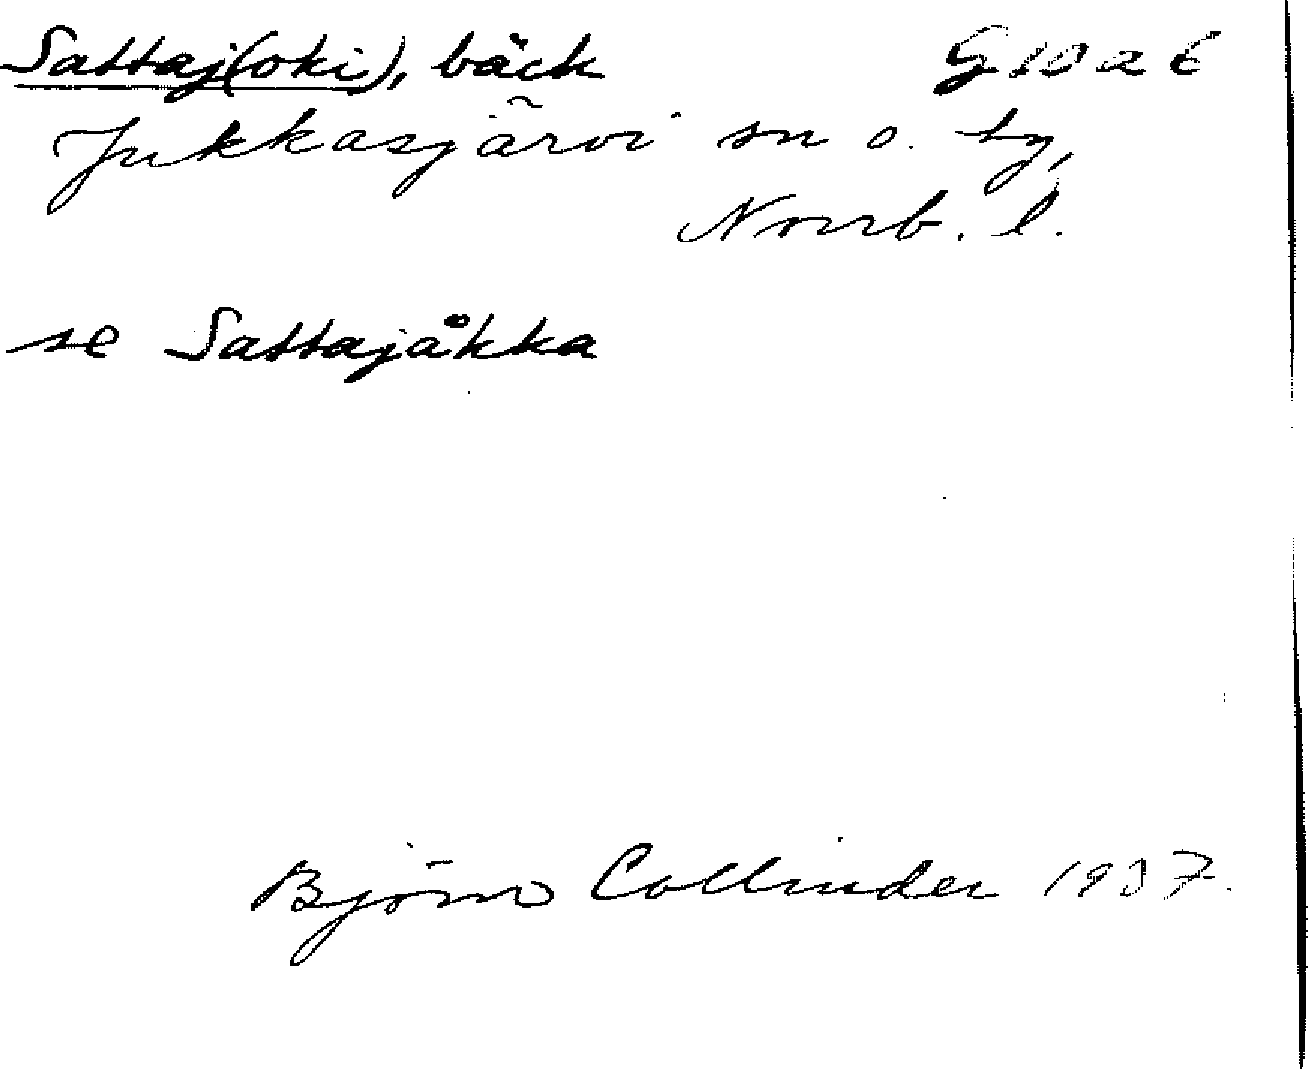 Sattaj(oki), bäck G 10 a 6
Jukkasjärvi sn o. by,
Norrb. l.
se Sattajåkka
Björn Collinder 1937.